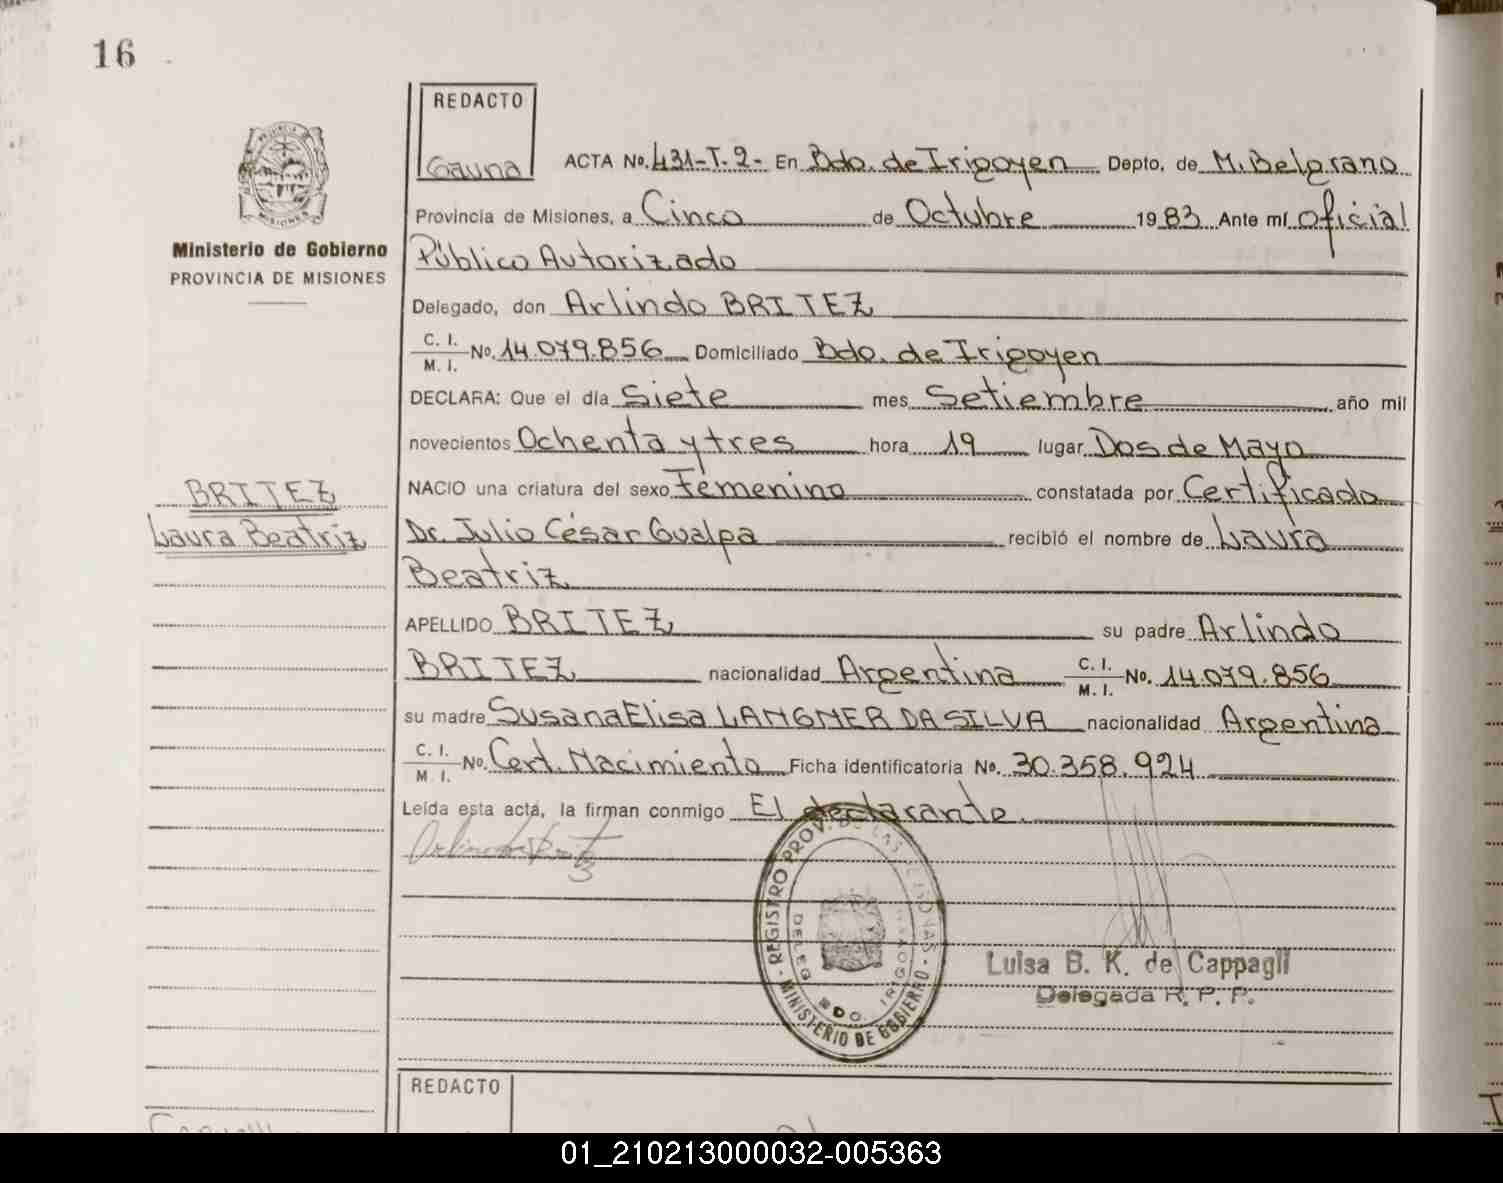 16
REDACTO
Gauna
ACTA No. 431-T.2- En Bdo. de Irigoyen Depto. de M. Belgrano
Ministerio de Gobierno
PROVINCIA DE MISIONES
Provincia de Misiones, a Cinco de Octubre 1983 Ante mí Oficial
Público Autorizado
Delegado, don Arlindo BRITEZ
C. I.
M. I. No. 14.079.856 Domiciliado Bdo. de Irigoyen
DECLARA: Que el día Siete mes Setiembre año mil
novecientos Ochenta y tres hora 19 lugar Dos de Mayo
BRITEZ
Laura Beatriz
NACIO una criatura del sexo Femenino constatada por Certificado
Dr. Julio César Gualpa recibió el nombre de Laura
Beatriz
APELLIDO BRITEZ su padre Arlindo
BRITEZ nacionalidad Argentina C. I. M. I. No. 14.079.856
su madre Susana Elisa LANGNER DA SILVA nacionalidad Argentina
C. I.
M. I. No. Cert. Nacimiento Ficha identificatoria No. 30.358.924
Leída esta acta, la firman conmigo El declarante.
REGISTRO PROV. DE LAS PERSONAS
MINISTERIO DE GOBIERNO
DELEG. BDO. IRIGOYEN
Luisa B. K. de Cappagli
Delegada R. P. P.
REDACTO
01_210213000032-005363